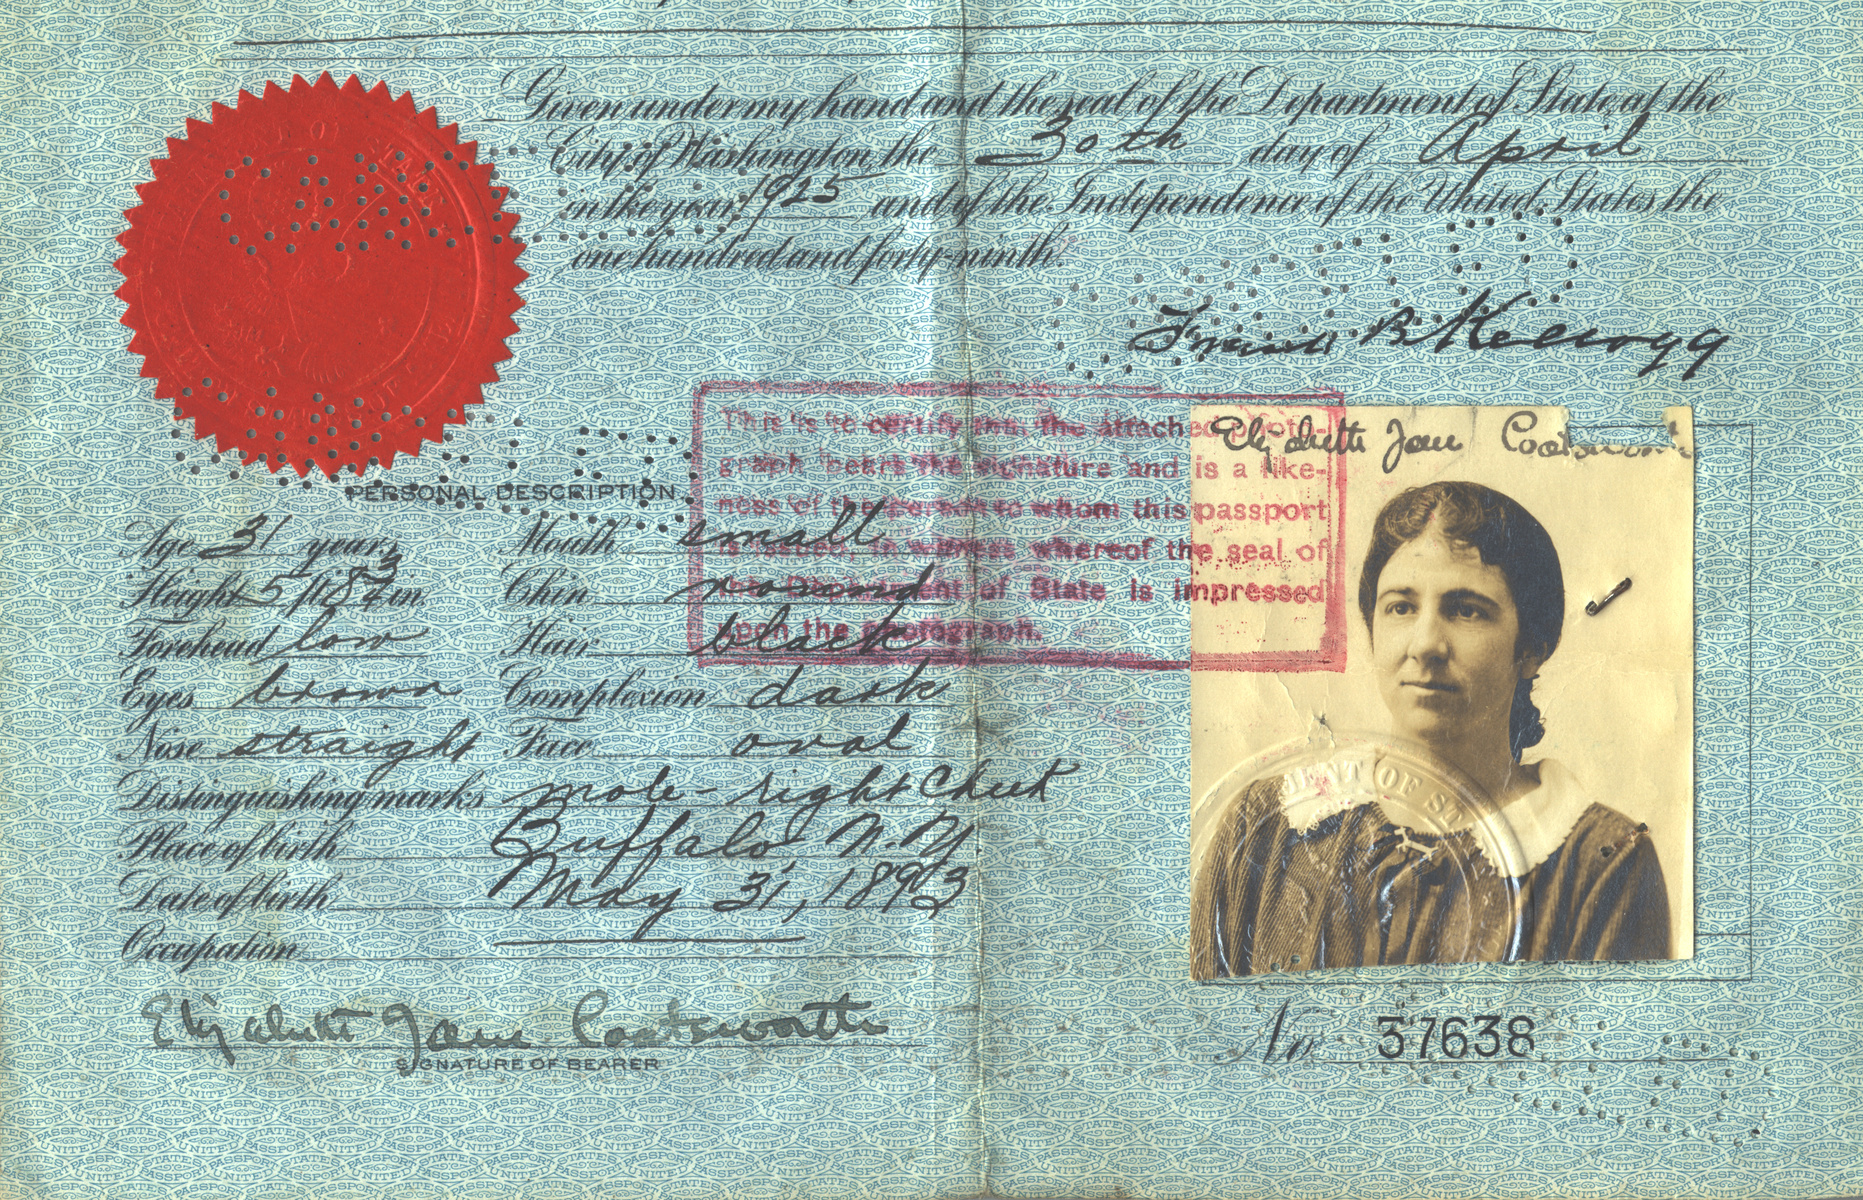 Given under my hand and the seal of the Department of State at the
City of Washington the 30th day of April
in the year 1925 and of the Independence of the United States the
one hundred and forty-ninth.
Frank B Kellogg
This is to certify that the attached photo-
graph bears the signature and is a like-
ness of the person to whom this passport
is issued. In witness whereof the seal of
the Department of State is impressed
upon the photograph.
Elizabeth Jane Coatsworth
PERSONAL DESCRIPTION
Age 31 years Mouth small
Height 5 ft 8 in. Chin round
Forehead low Hair black
Eyes brown Complexion dark
Nose straight Face oval
Distinguishing marks mole - right cheek
Place of birth Buffalo, N.Y
Date of birth May 31, 1893
Occupation
Elizabeth Jane Coatsworth
SIGNATURE OF BEARER
No 37638